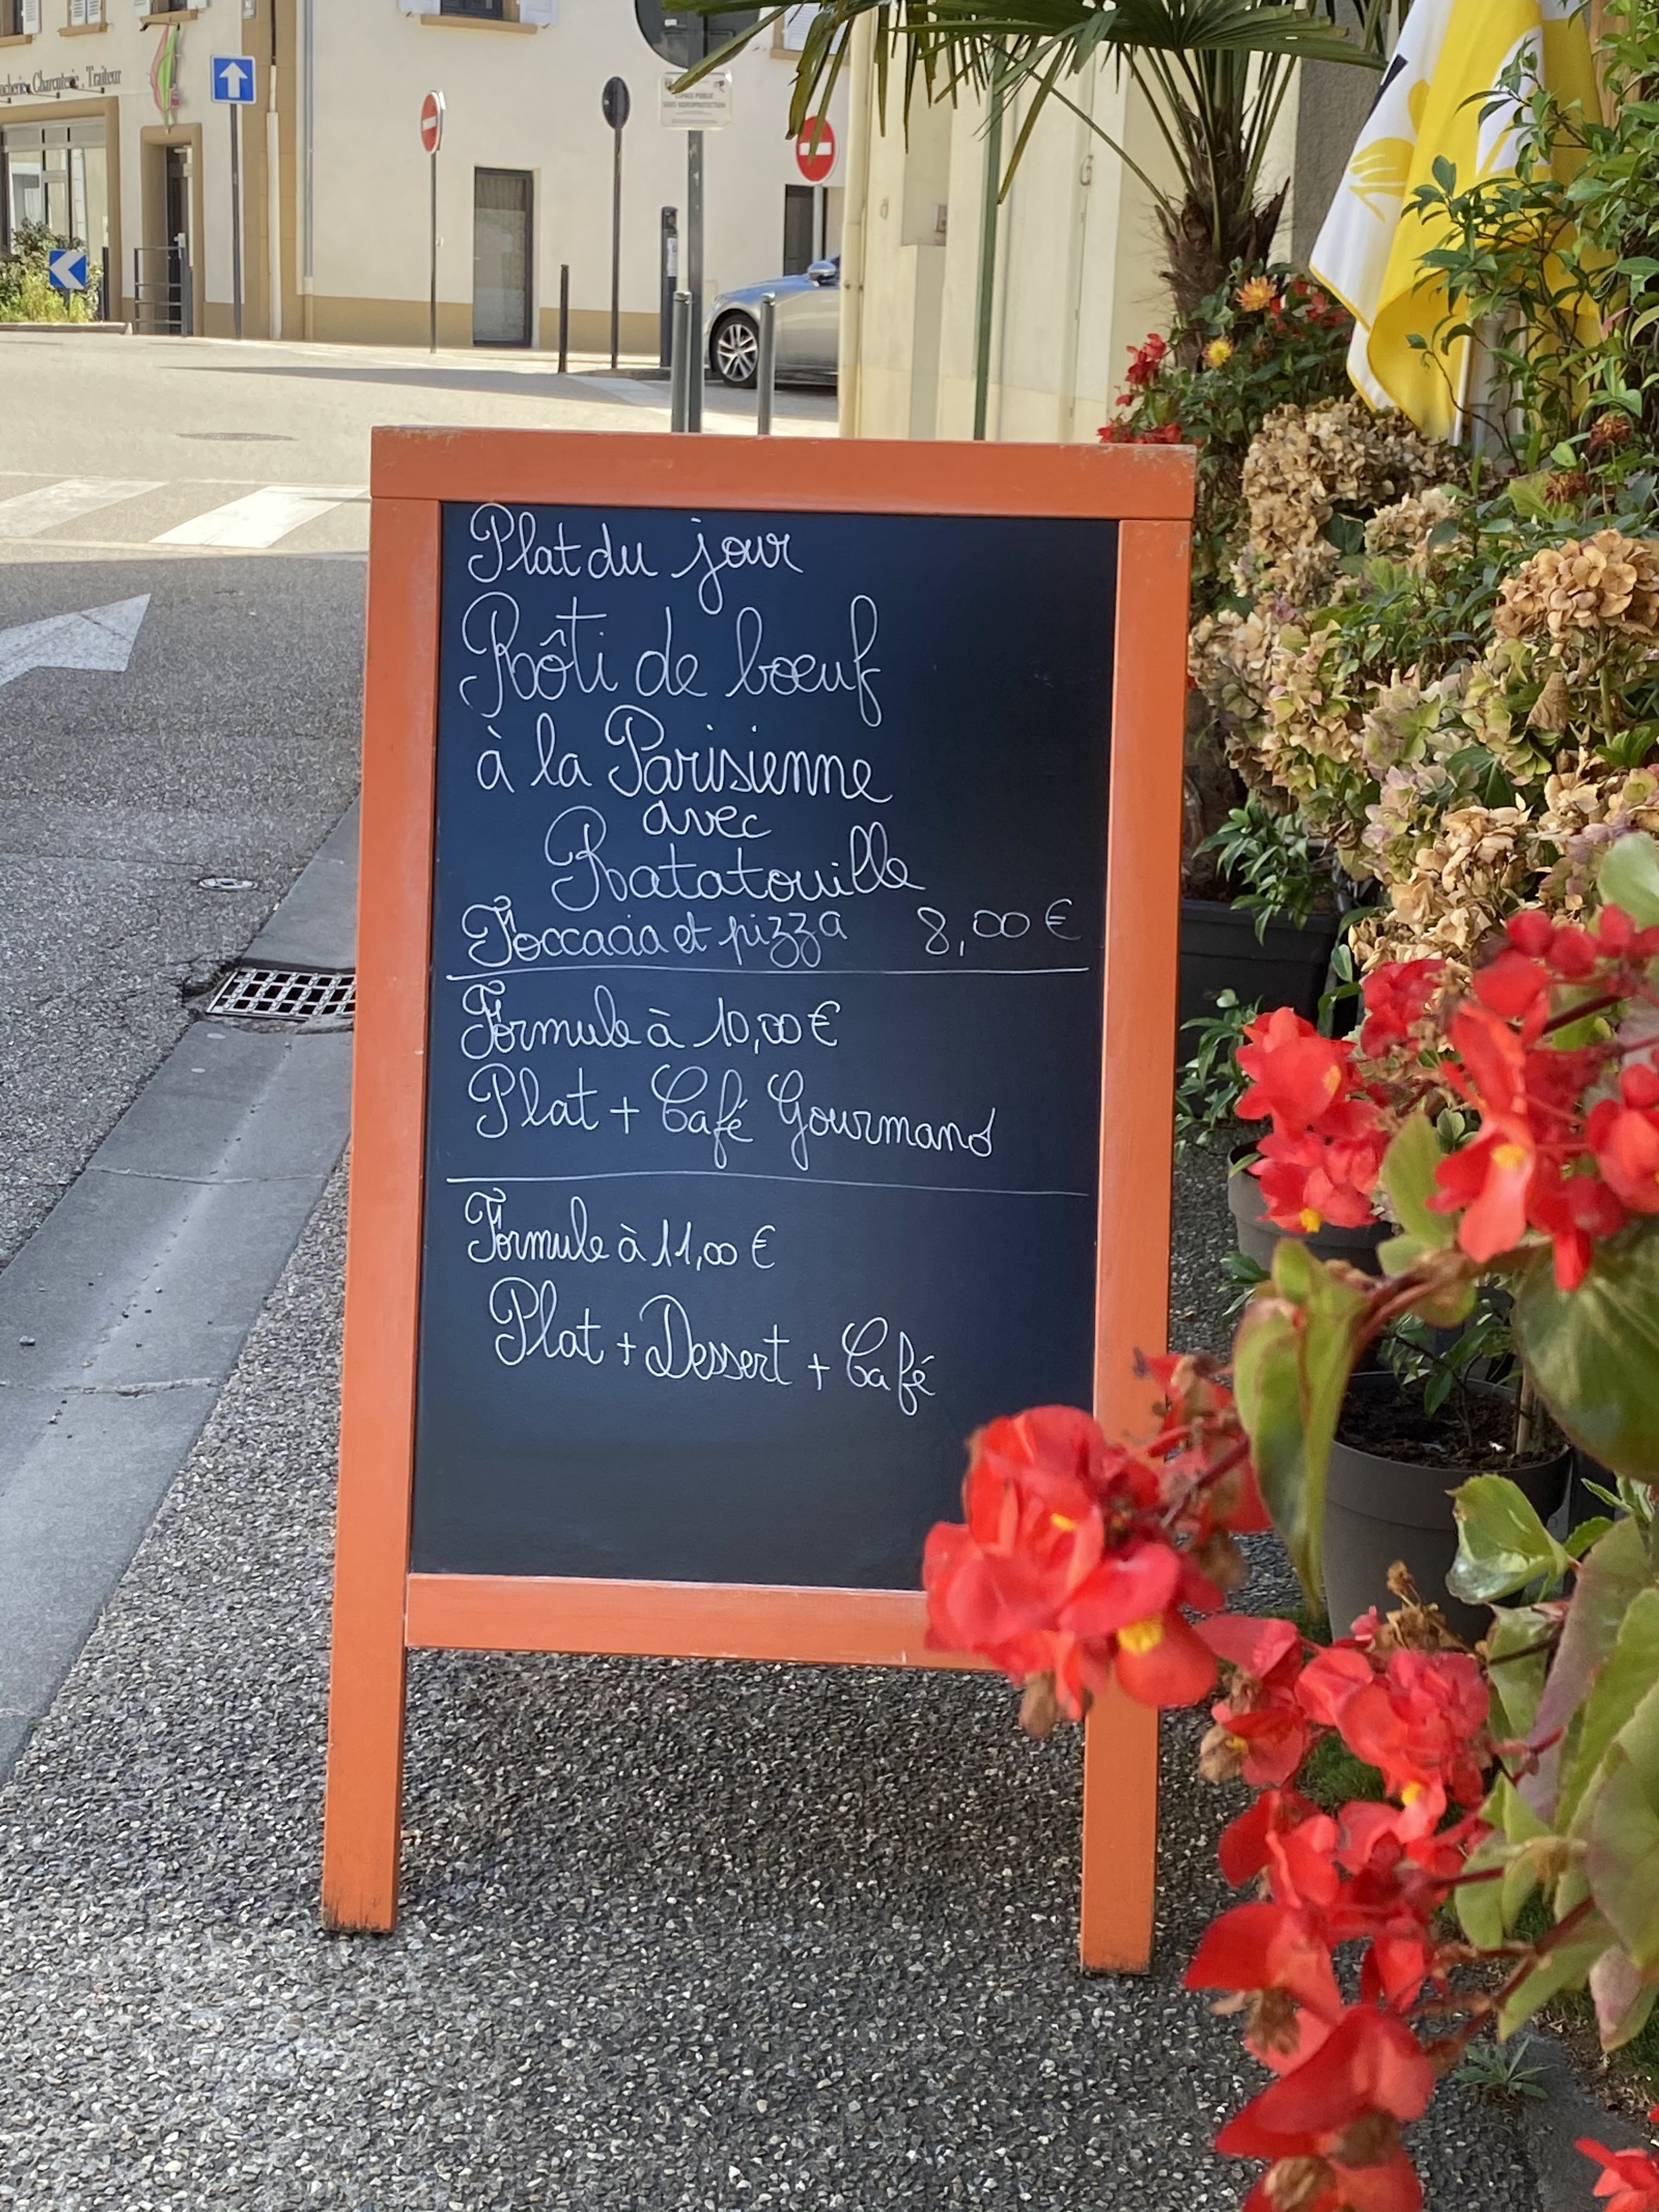 Charcuterie, Traiteur
ESPACE PUBLIC
SOUS VIDEOPROTECTION
Plat du jour
Rôti de bœuf
à la Parisienne
avec
Ratatouille
Foccacia et pizza 8,00 €
Formule à 10,00 €
Plat + Café Gourmand
Formule à 11,00 €
Plat + Dessert + Café